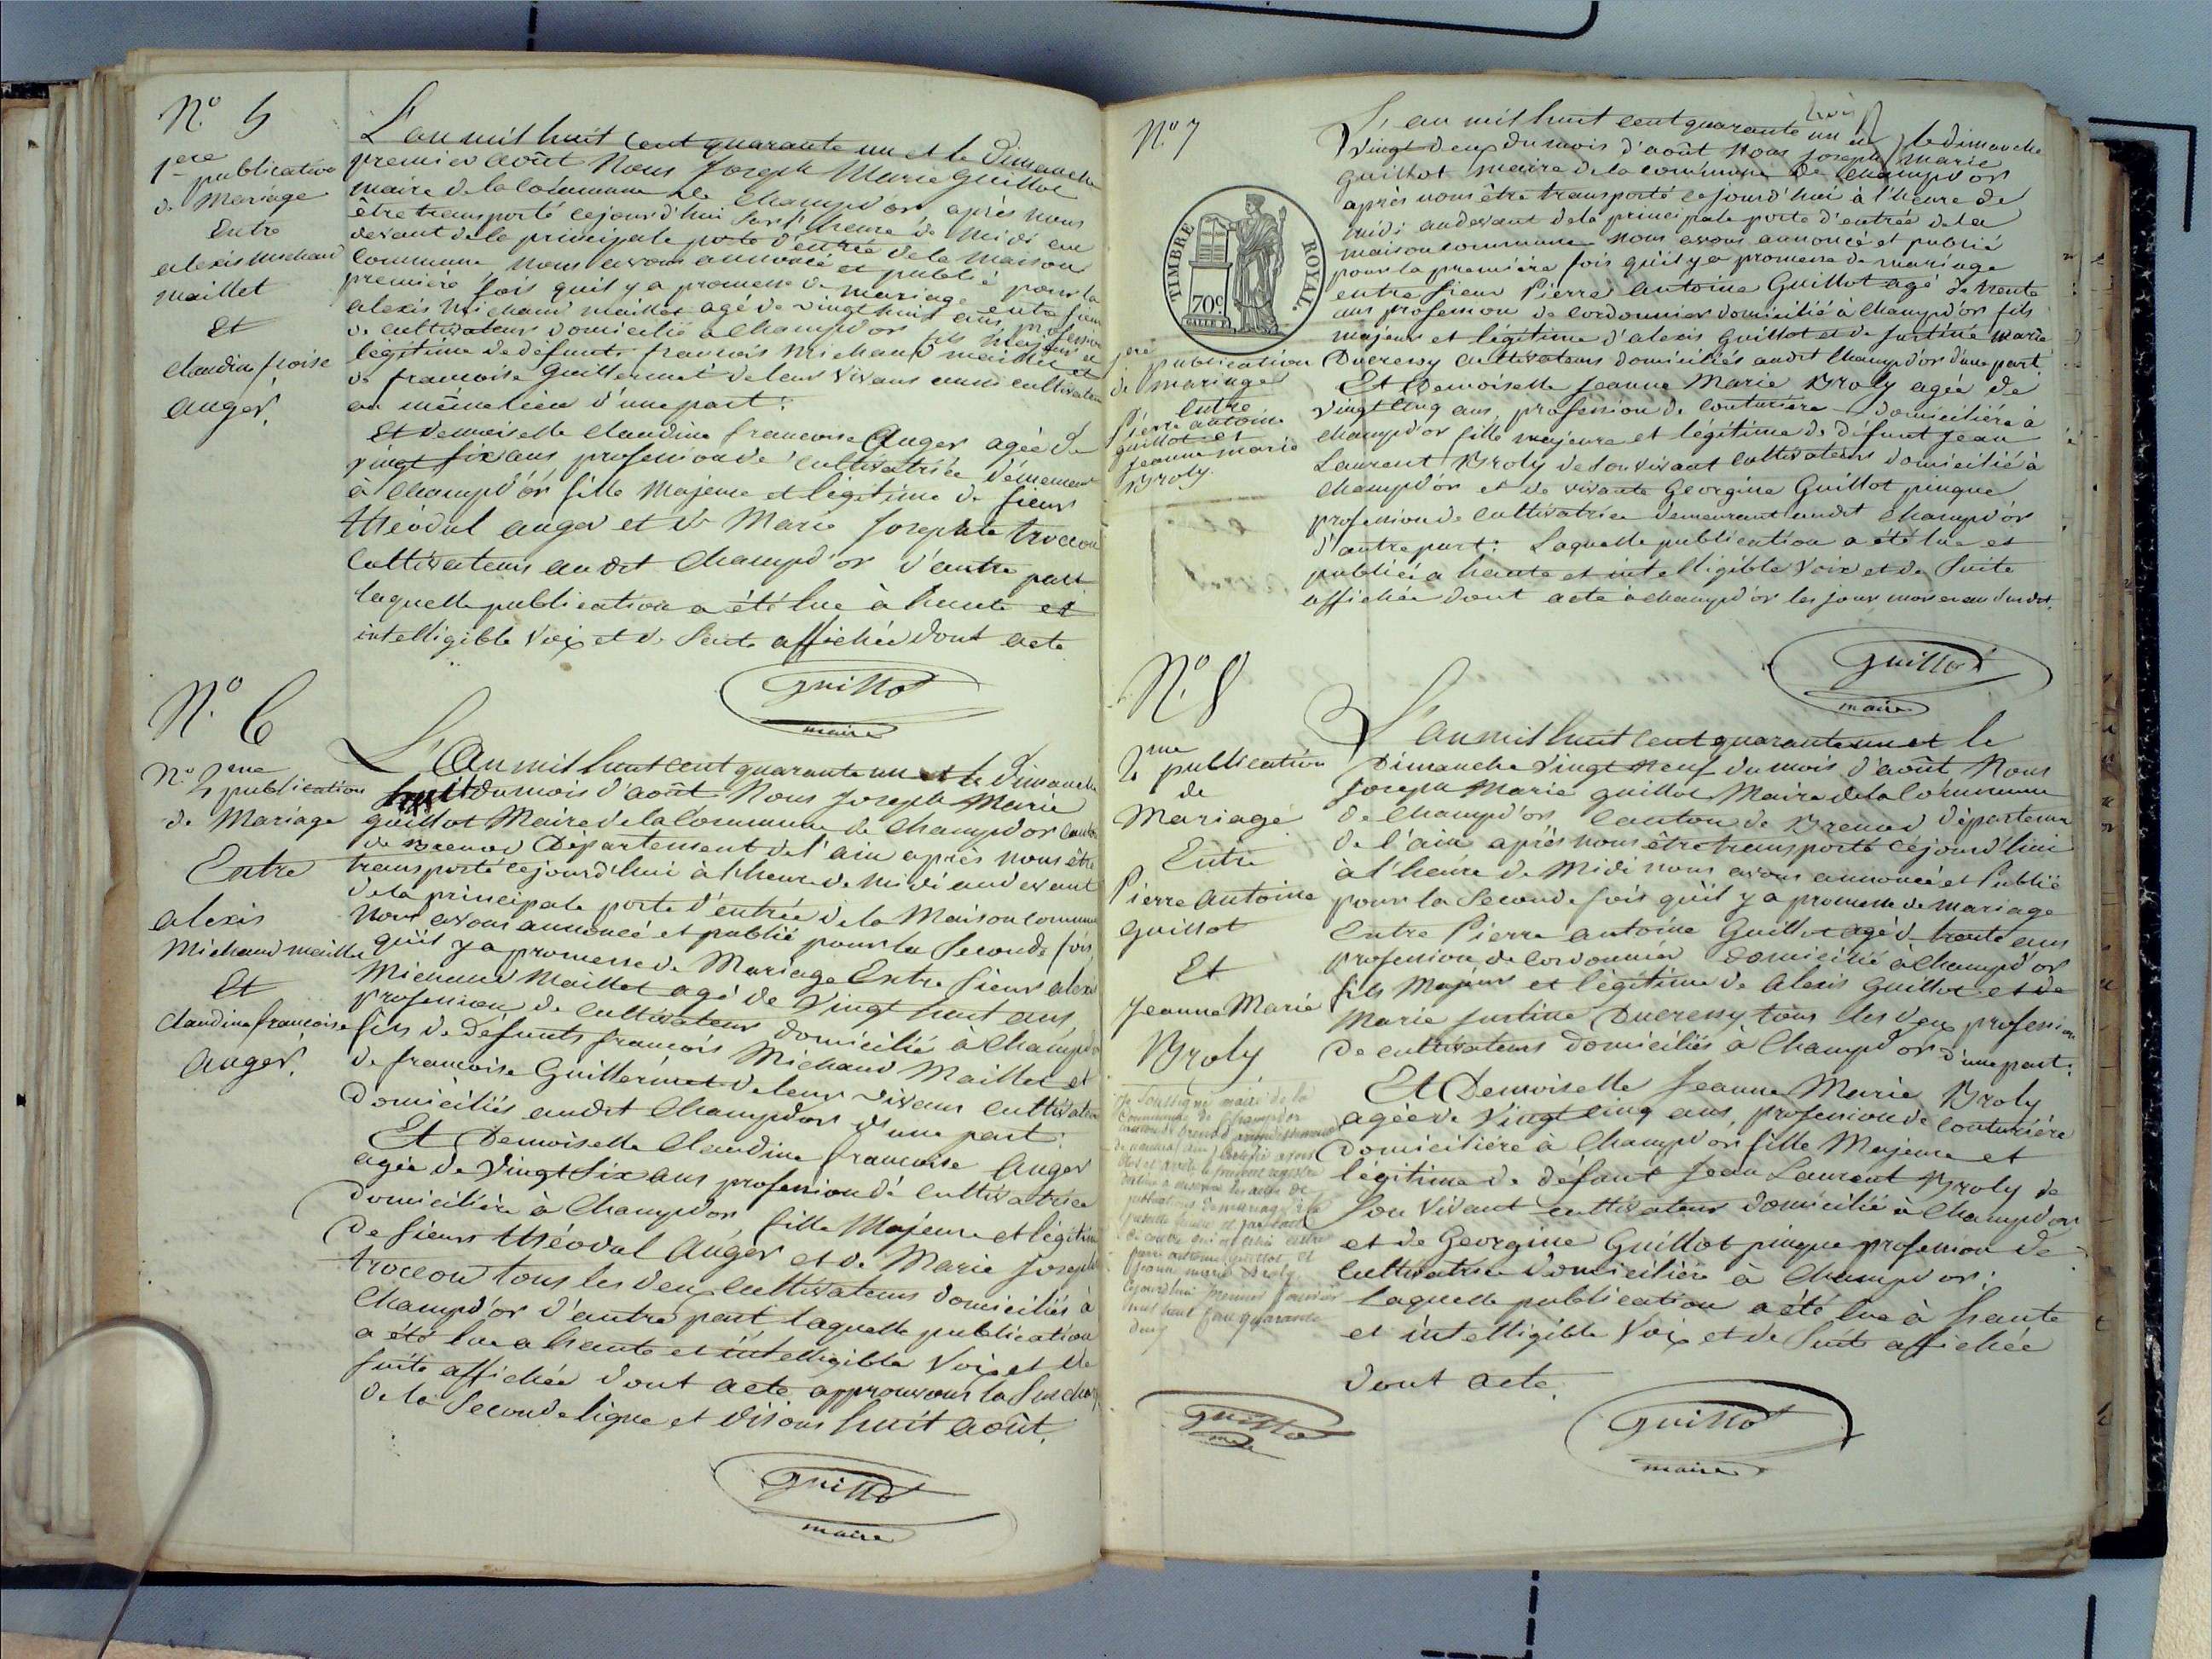 N.º 5
1ere publication
de Mariage
Entre
alexis michaud
maillet
Et
Claudine froise
auger.
L'an mil huit Cent quarante un et le Dimanche
premier août Nous Joseph Marie Guillot
maire de la Commune de Champd'or après nous
être transporté cejourd'hui sur l'heure de Midi au
devant de la principale porte d'entrée de la Maison
Commune nous avons annoncé et publié pour la
première fois quil y a promesse de Mariage entre sieur
alexis Michaud maillet agé de vingt huit ans profession
de Cultivateur domicilié à Champd'or fils Majeur et
légitime de défunts francois Michaud maillet et
de francoise Guillermet de leur vivans aussi cultivateurs
au même lieu d'une part :
Et demoiselle Claudine francoise Auger agée de
vingt six ans profession de Cultivatrice démeurant
à Champd'or fille Majeure et légitime de sieur
théodul auger et de Marie Josephte troccon
Cultivateurs audit Champd'or d'autre part
laquelle publication a été lue à haute et
intelligible voix et de Suite affichée dont acte
Guillot
maire
N.º 6
N.º 2me
publication
de Mariage
Entre
alexis
Michaud maillet
Et
Claudine francoise
auger.
L'An mil huit cent quarante un et le dimanche
huit du mois d'août Nous Joseph Marie
Guillot Maire de la Commune de Champd'or Canton
de Brenod Département de l'ain après nous être
transporté cejourd'hui à l'heure de Midi audevant
de la principale porte d'entrée de la Maison Commune
Nous avons annoncé et publié pour la Seconde fois
qu'il y a promesse de Mariage Entre Sieur alexis
Michaud Maillet agé de Vingt huit ans
profession de Cultivateur domicilié à Champd'or
fils de défunts francois Michaud Maillet et
de francoise Guillermet de leur vivans Cultivateurs
Domiciliés audit Champd'or d'une part :
Et Demoiselle Claudine francoise Auger
agée de Vingt Six ans profession de Cultivatrice
Domiciliére à Champd'or, fille Majeure et légitime
de sieur théodul Auger et de Marie Josephte
troccon tous les deux Cultivateurs domiciliés à
Champd'or d'autre part laquelle publication
a été lue a haute et intelligible Voix et de
suite affichée dont acte approuvons la Surcharge
de la Seconde ligne et disons huit août.
Guillot
maire
N.º 7
TIMBRE ROYAL.
70c
1ere
publication
de mariage
Entre
Pierre antoine
guillot et
Jeanne marie
Broly.
L'an mil huit cent quarante un et le dimanche
Vingt deux du mois d'août Nous Joseph Marie
Guillot maire de la commune de Champd'or
après nous être transporté cejourd'hui à l'heure de
midi audevant de la principale porte d'entrée de la
maison commune Nous avons annoncé et publié
pour la première fois qu'il y a promesse de mariage
entre sieur Pierre antoine Guillot agé de trente
ans profession de Cordonnier domicilié à Champd'or fils
majeur et légitime d'alexis Guillot et de Justine Marie
Ducressy Cultivateurs domiciliés audit Champd'or d'une part.
Et Demoiselle Jeanne Marie Broly agée de
vingt cinq ans, profession de Couturière domiciliére à
Champd'or fille majeure et légitime de défunt Jean
Laurent Broly de son vivant Cultivateur domicilié à
Champd'or et de vivante Georgine Guillot pingue
profession de Cultivatrice demeurant audit Champd'or
d'autre part : Laquelle publication a été lue et
publiée a haute et intelligible Voix et de Suite
affichée dont acte à Champd'or les jour mois et an susdit.
Guillot
maire
N.º 8
2me publication
de
Mariage
Entre
Pierre Antoine
Guillot
Et
Jeanne Marie
Broly
L'an mil huit Cent quarante un et le
Dimanche Vingt Neuf du mois d'août Nous
Joseph Marie Guillot Maire de la Commune
de Champd'or Canton de Brenod Département
de l'ain après nous être transporté cejourd'hui
à l'heure de Midi nous avons annoncé et Publié
pour la Seconde fois qu'il y a promesse de Mariage
Entre Pierre antoine Guillot agé de trente ans
profession de Cordonnier domicilié à Champd'or
fils Majeur et légitime de Alexis Guillot et de
Marie Justine Ducressy tous les deux profession
de cultivateurs domiciliés à Champd'or d'une part.
Et Demoiselle Jeanne Marie Broly
agée de Vingt cinq ans, profession de Couturière
Domiciliére à Champd'or fille Majeure et
légitime de défunt Jean Laurent Broly de
son Vivant cultivateur domicilié à Champd'or
et de Georgine Guillot pingue profession de
Cultivatrice domiciliére à Champd'or ;
laquelle publication a été lue à haute
et intelligible Voix et de Suite affichée
dont acte.
Guillot
maire
Soussigné maire de la
Commune de Champd'or
le présent registre
publications de mariage
entre
pierre antoine guillot et
jeanne marie Broly
cejourd'hui premier janvier
mil huit cent quarante
deux
Guillot